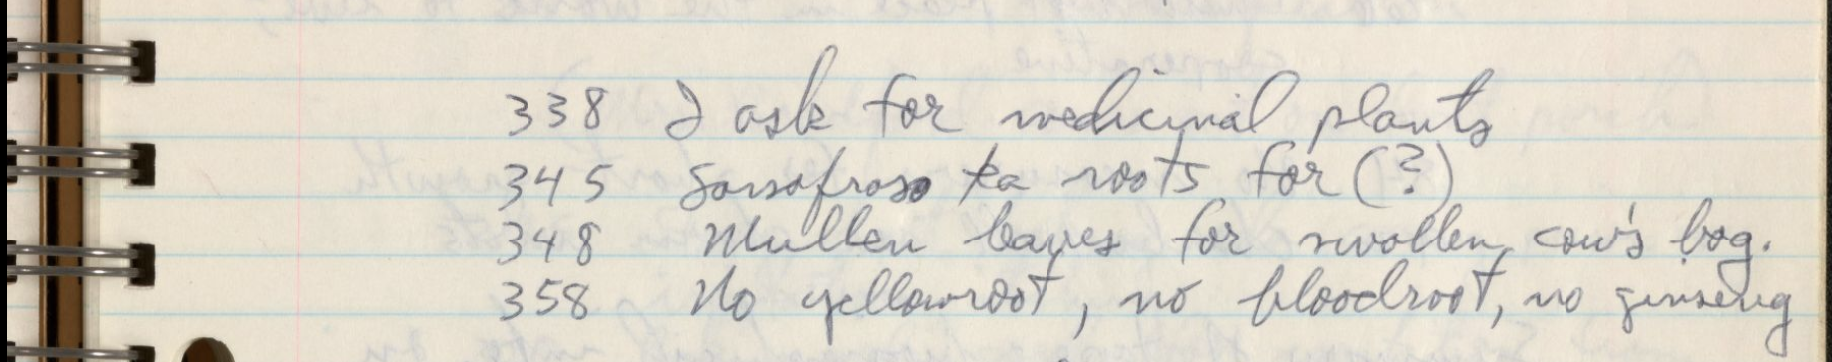 338 I ask for medicinal plants
345 Sassafrass tea roots for (?)
348 Mullen leaves for swollen cow's bag.
358 No yellowroot, no bloodroot, no ginseng